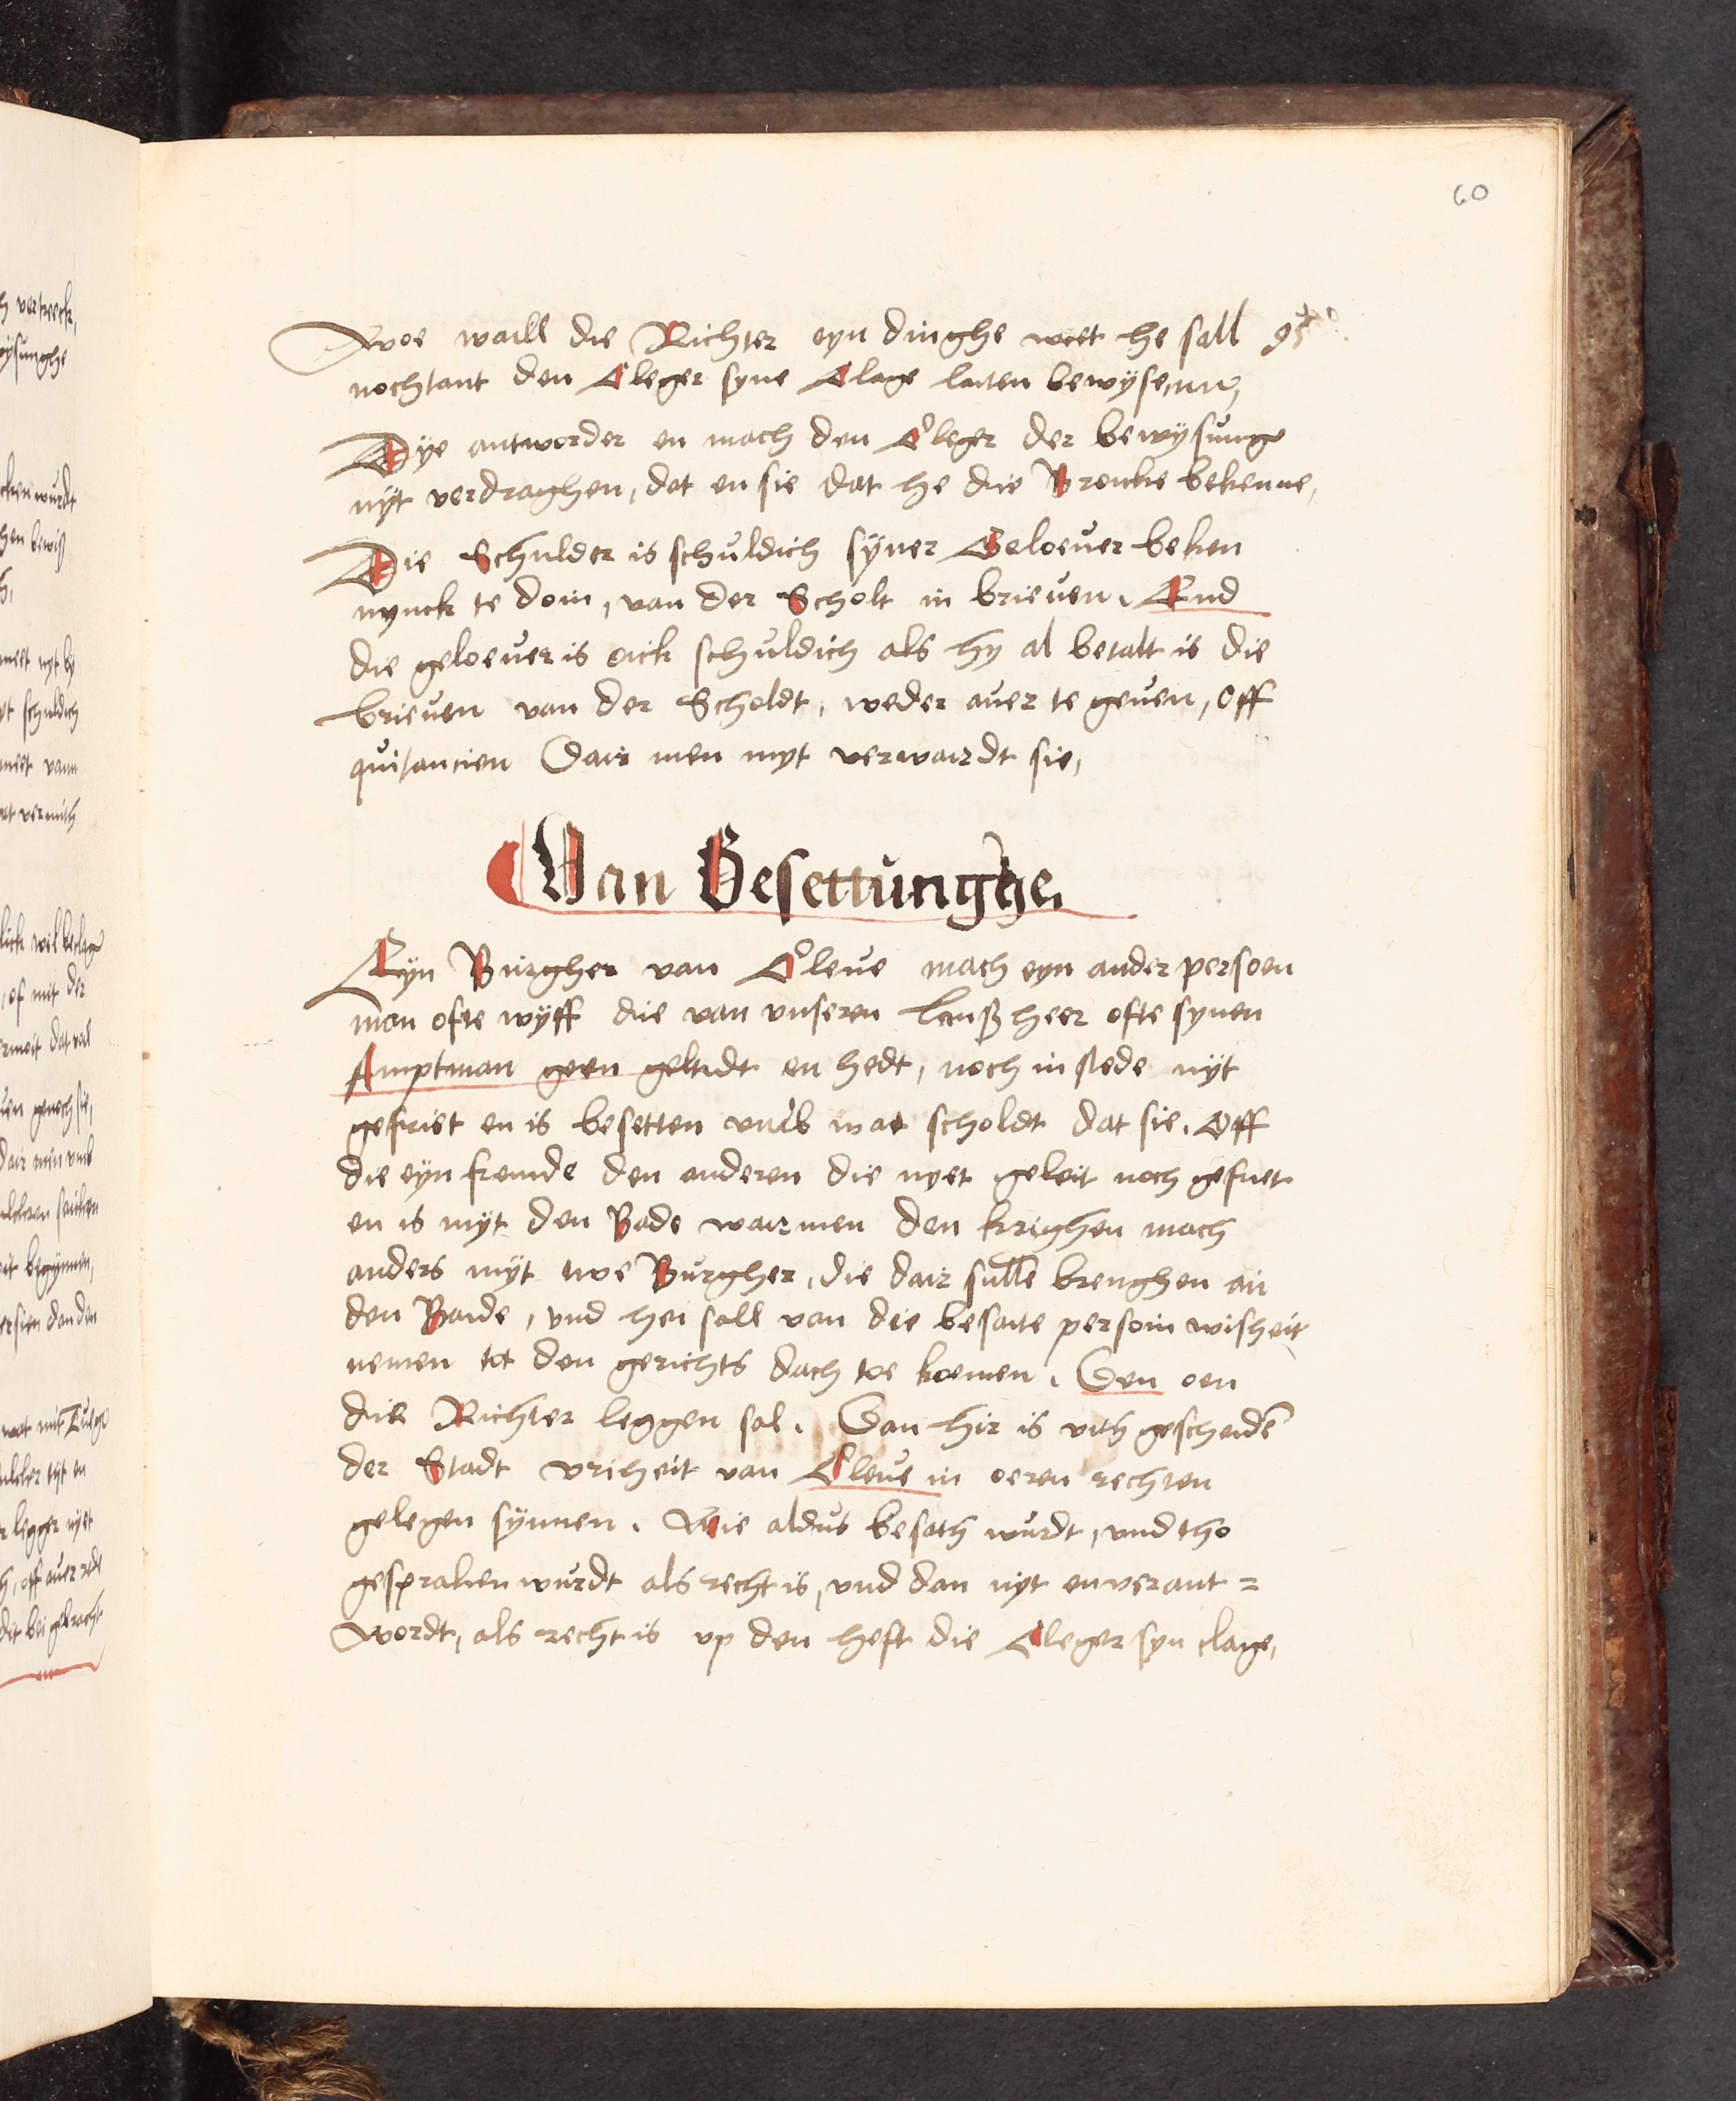 60
Woe waill die Richter eyn dinghe weet he sall
nochtant den Cleger syne Clage laiten bewysenn,
Dye antworder en mach den Cleger der bewysunge
nyt verdraghen, dat en sie dat he die Broicke bekenne,
Die Schulder is schuldich syner Geloever beken
nynck te doin, van der Scholt in brieven. End
die geloever is oick schuldich als hy al betalt is die
brieven van der Scholdt, weder aver te geven, off
quitancien Dair men myt verwairdt sie,
Van Besettunghe.
Eyn Burgher van Cleve mach eyn ander persoen
man ofte wyff die van unseren Lanßheer ofte synen
Amptman geen geltidt en hedt, noch in stede nyt
gefriet en is besetten umb wat scholdt dat sie. Off
die eyn fremde den anderen die nyet geleit noch gefriet
en is myt den Bade wair men den krighen mach
anders myt twe Burgher, die dair sulle brenghen an
den Baide, und hei sall van die besatte persoin wisheit
nemen tot den gerichts dach toe koemen. Den oen
die Richter leggen sal. Van hir is uith gescheide
der Stadt vriheit van Cleve in oeren rechten
gelegen synnen. Wie aldus besath wurdt, und tho
gespraken wurdt als recht is, und dan nyt en verant=
wordt, als recht is up den heft die Cleger syn clage,
vertreck,
wysunghe
wurdt
bewiß
meet nyt by
schuldich
meet vann
wil beclage
of mit der
dat val
genoech sie,
dair men umb
begynnen,
ersien dan den
tyt en
legger nyet
off aver
bei gebracht